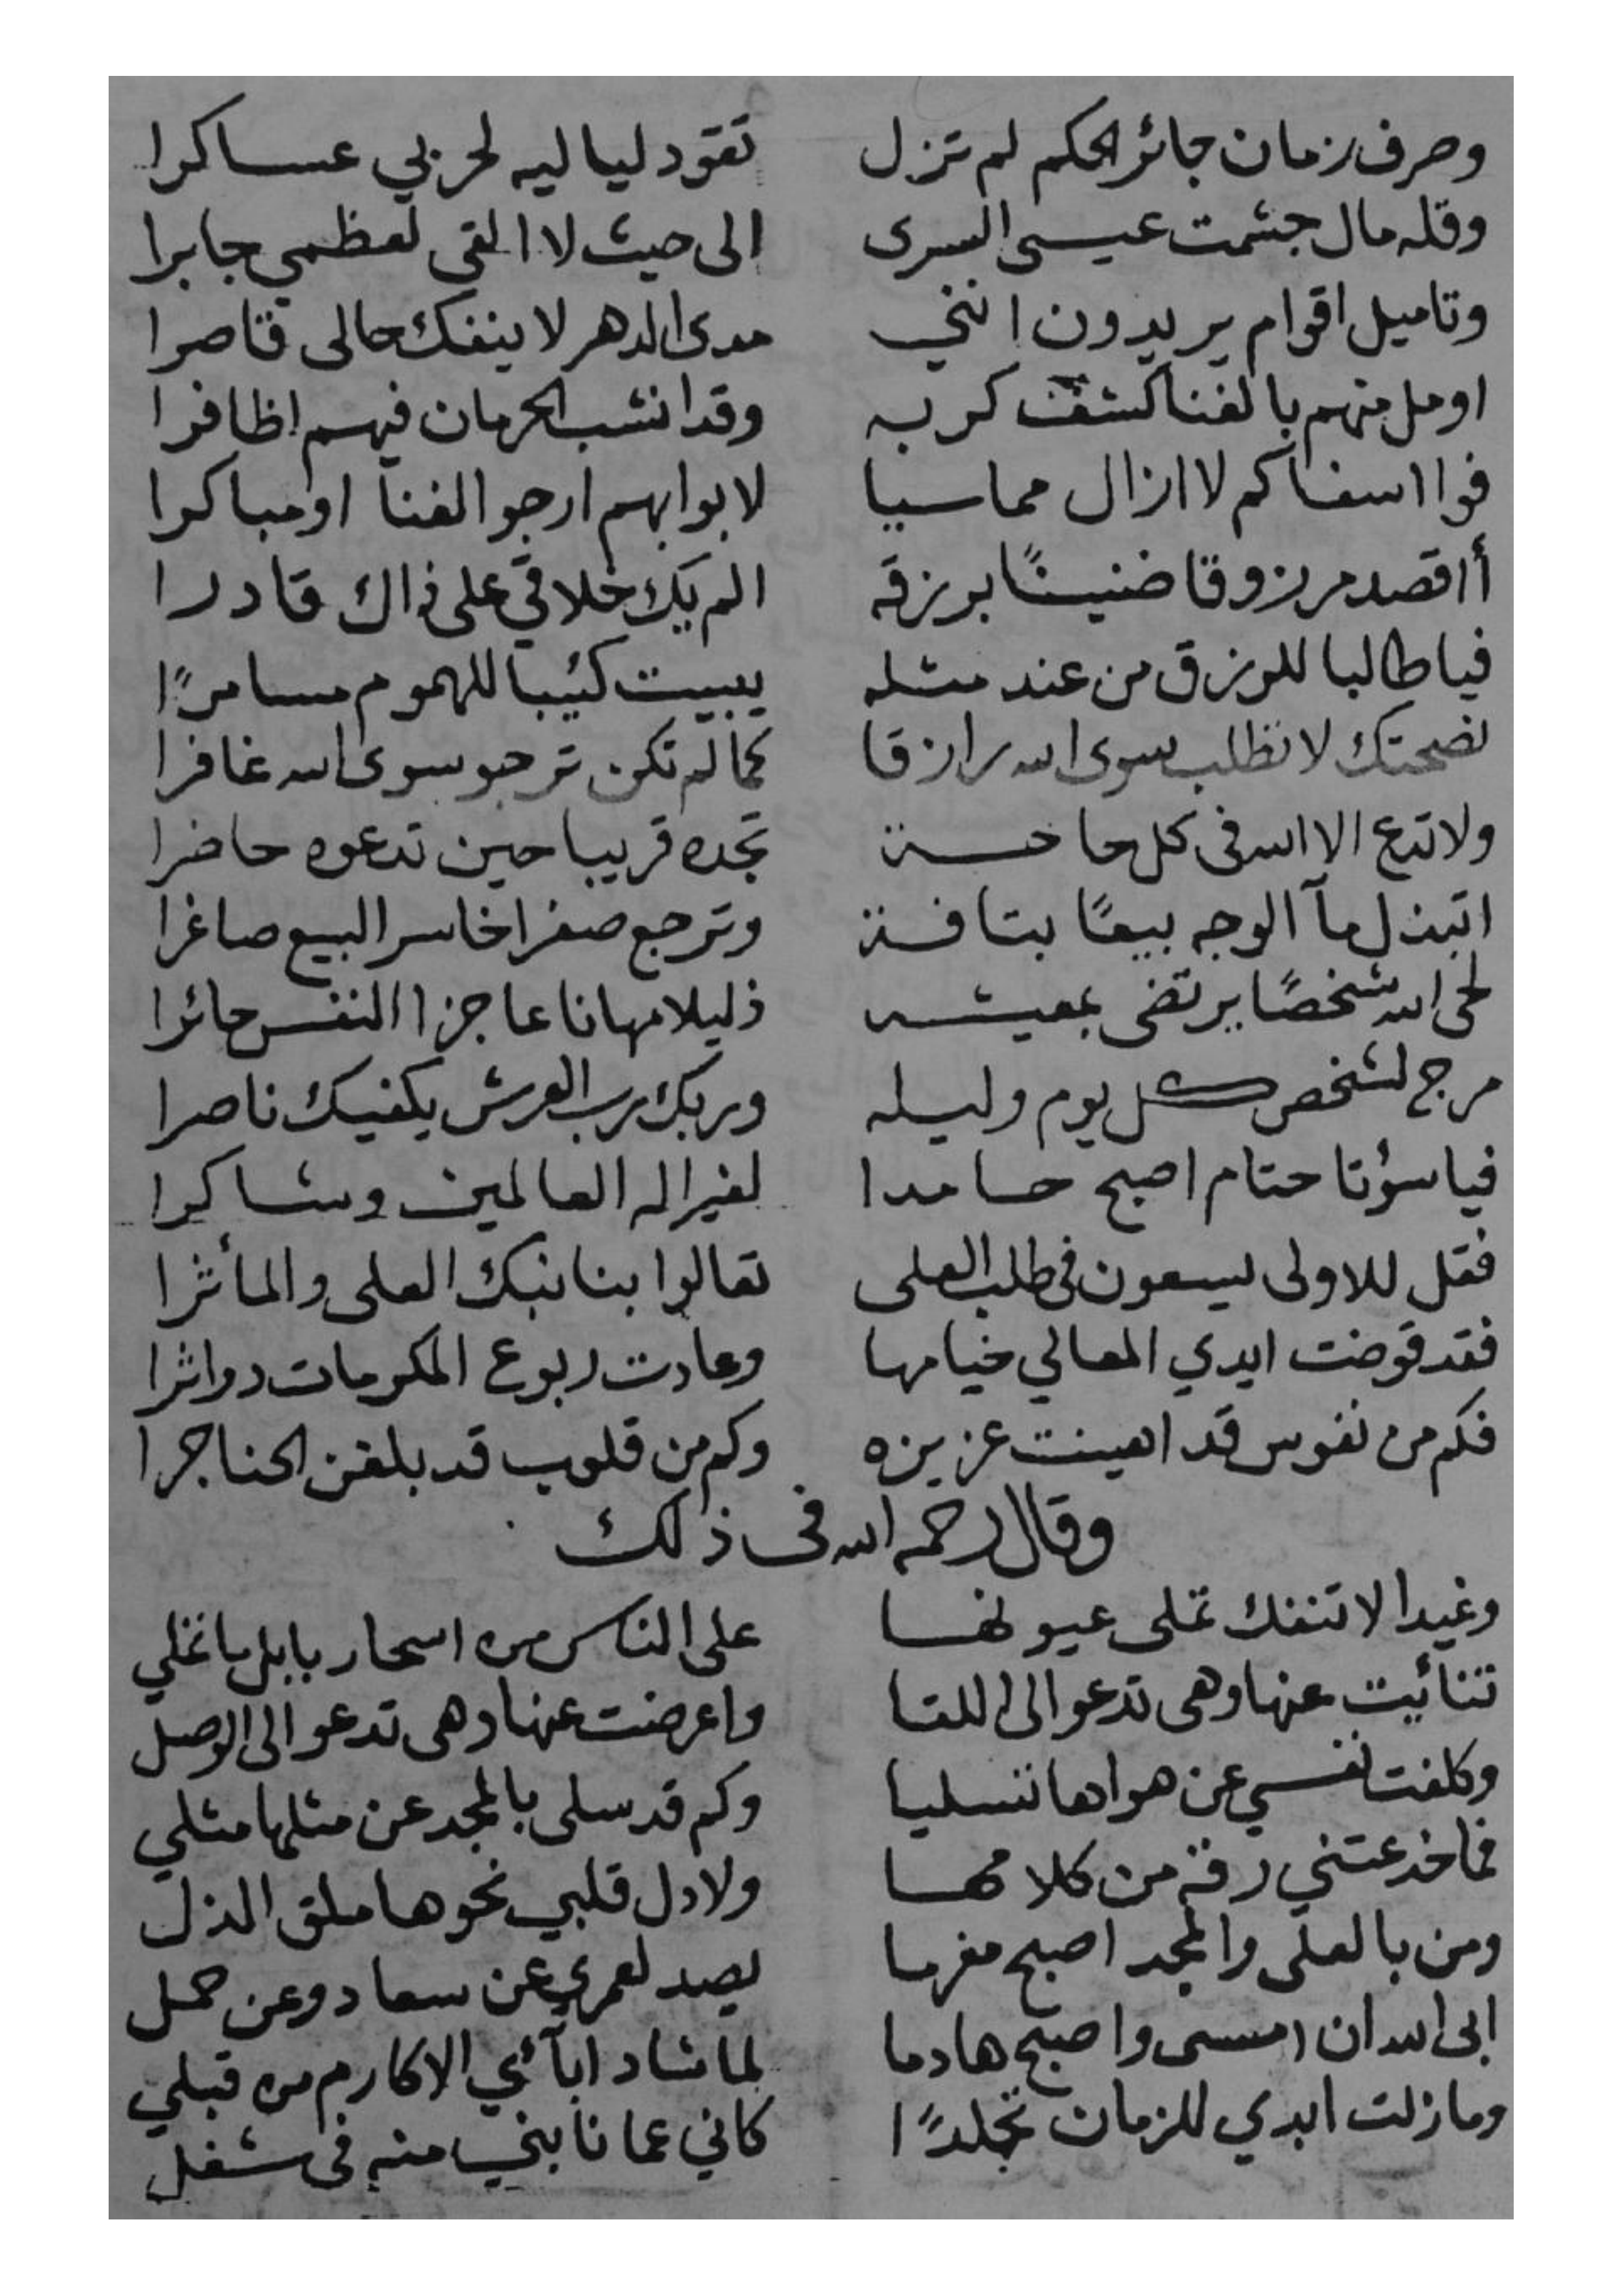 وصرف زمان جائر الحكم لم تزل تقود لياليه لحربي عساكرا
وقله مال جشمت عيسى السرى الى حيث لا القى لعظمي جابرا
وتاميل اقوام يريدون انني مدى الدهر لا ينفك حالى قاصرا
اومل منهم بالغنا كشف كربه وقد انشب الحرمان فيهم اظافرا
فوا اسفا كم لا ازال مماسيا لابوابهم ارجو الغنا اومباكرا
أاقصد مرزوقا ضنينًا برزقه الم يك خلاقي على ذاك قادرا
فيا طالبا للرزق من عند مثله يبيت كئيبا للهموم مسامرًا
نصحتك لا تطلب سوى الله رازقا كما لم تكن ترجو سوى الله غافرا
ولا تدع الا الله في كل حا جــة تجده قريبا حين تدعوه حاضرا
اتبذل مآ الوجه بيعًا بتافــة وترجع صفرا خاسر البيع صاغرا
لحى الله شخصًا يرتضى بمعيشــه ذليلا مهانا عاجزا النفس حائرا
مرج لشخص كل يوم وليله وربك رب العرش يكفيك ناصرا
فيا سؤتا حتام اصبح حامدا لغير اله العالمين وشاكرا
فقل للاولى يسعون في طلب العلى تعالوا بنا نبك العلى والمأثرا
فقد قوضت ايدي المعالي خيامها وعادت ربوع المكرمات دواثرا
فكم من نفوس قد اهينت عزيزه وكم من قلوب قد بلغن الحناجرا
وقال رحمه الله فى ذلك
وغيدا لا تنفك تملى عيونها على الناس من اسحار بابل ما تملي
تنائيت عنها وهى تدعو الى اللقا واعرضت عنها وهى تدعو الى الوصل
وكلفت نفسي عن هواها تسليا وكم قد سلى بالمجد عن مثلها مثلي
فما خدعتني رقة من كلامها ولا دل قلبي نحوها ملق الذل
ومن بالعلى والمجد اصبح مغرما يصد لعمري عن سعاد وعن جمل
ابى الله ان امسى واصبح هادما لما شاد ابآئي الاكارم من قبلي
وما زلت ابدي للزمان تجلدًا كاني عما نابني منه فى شغل